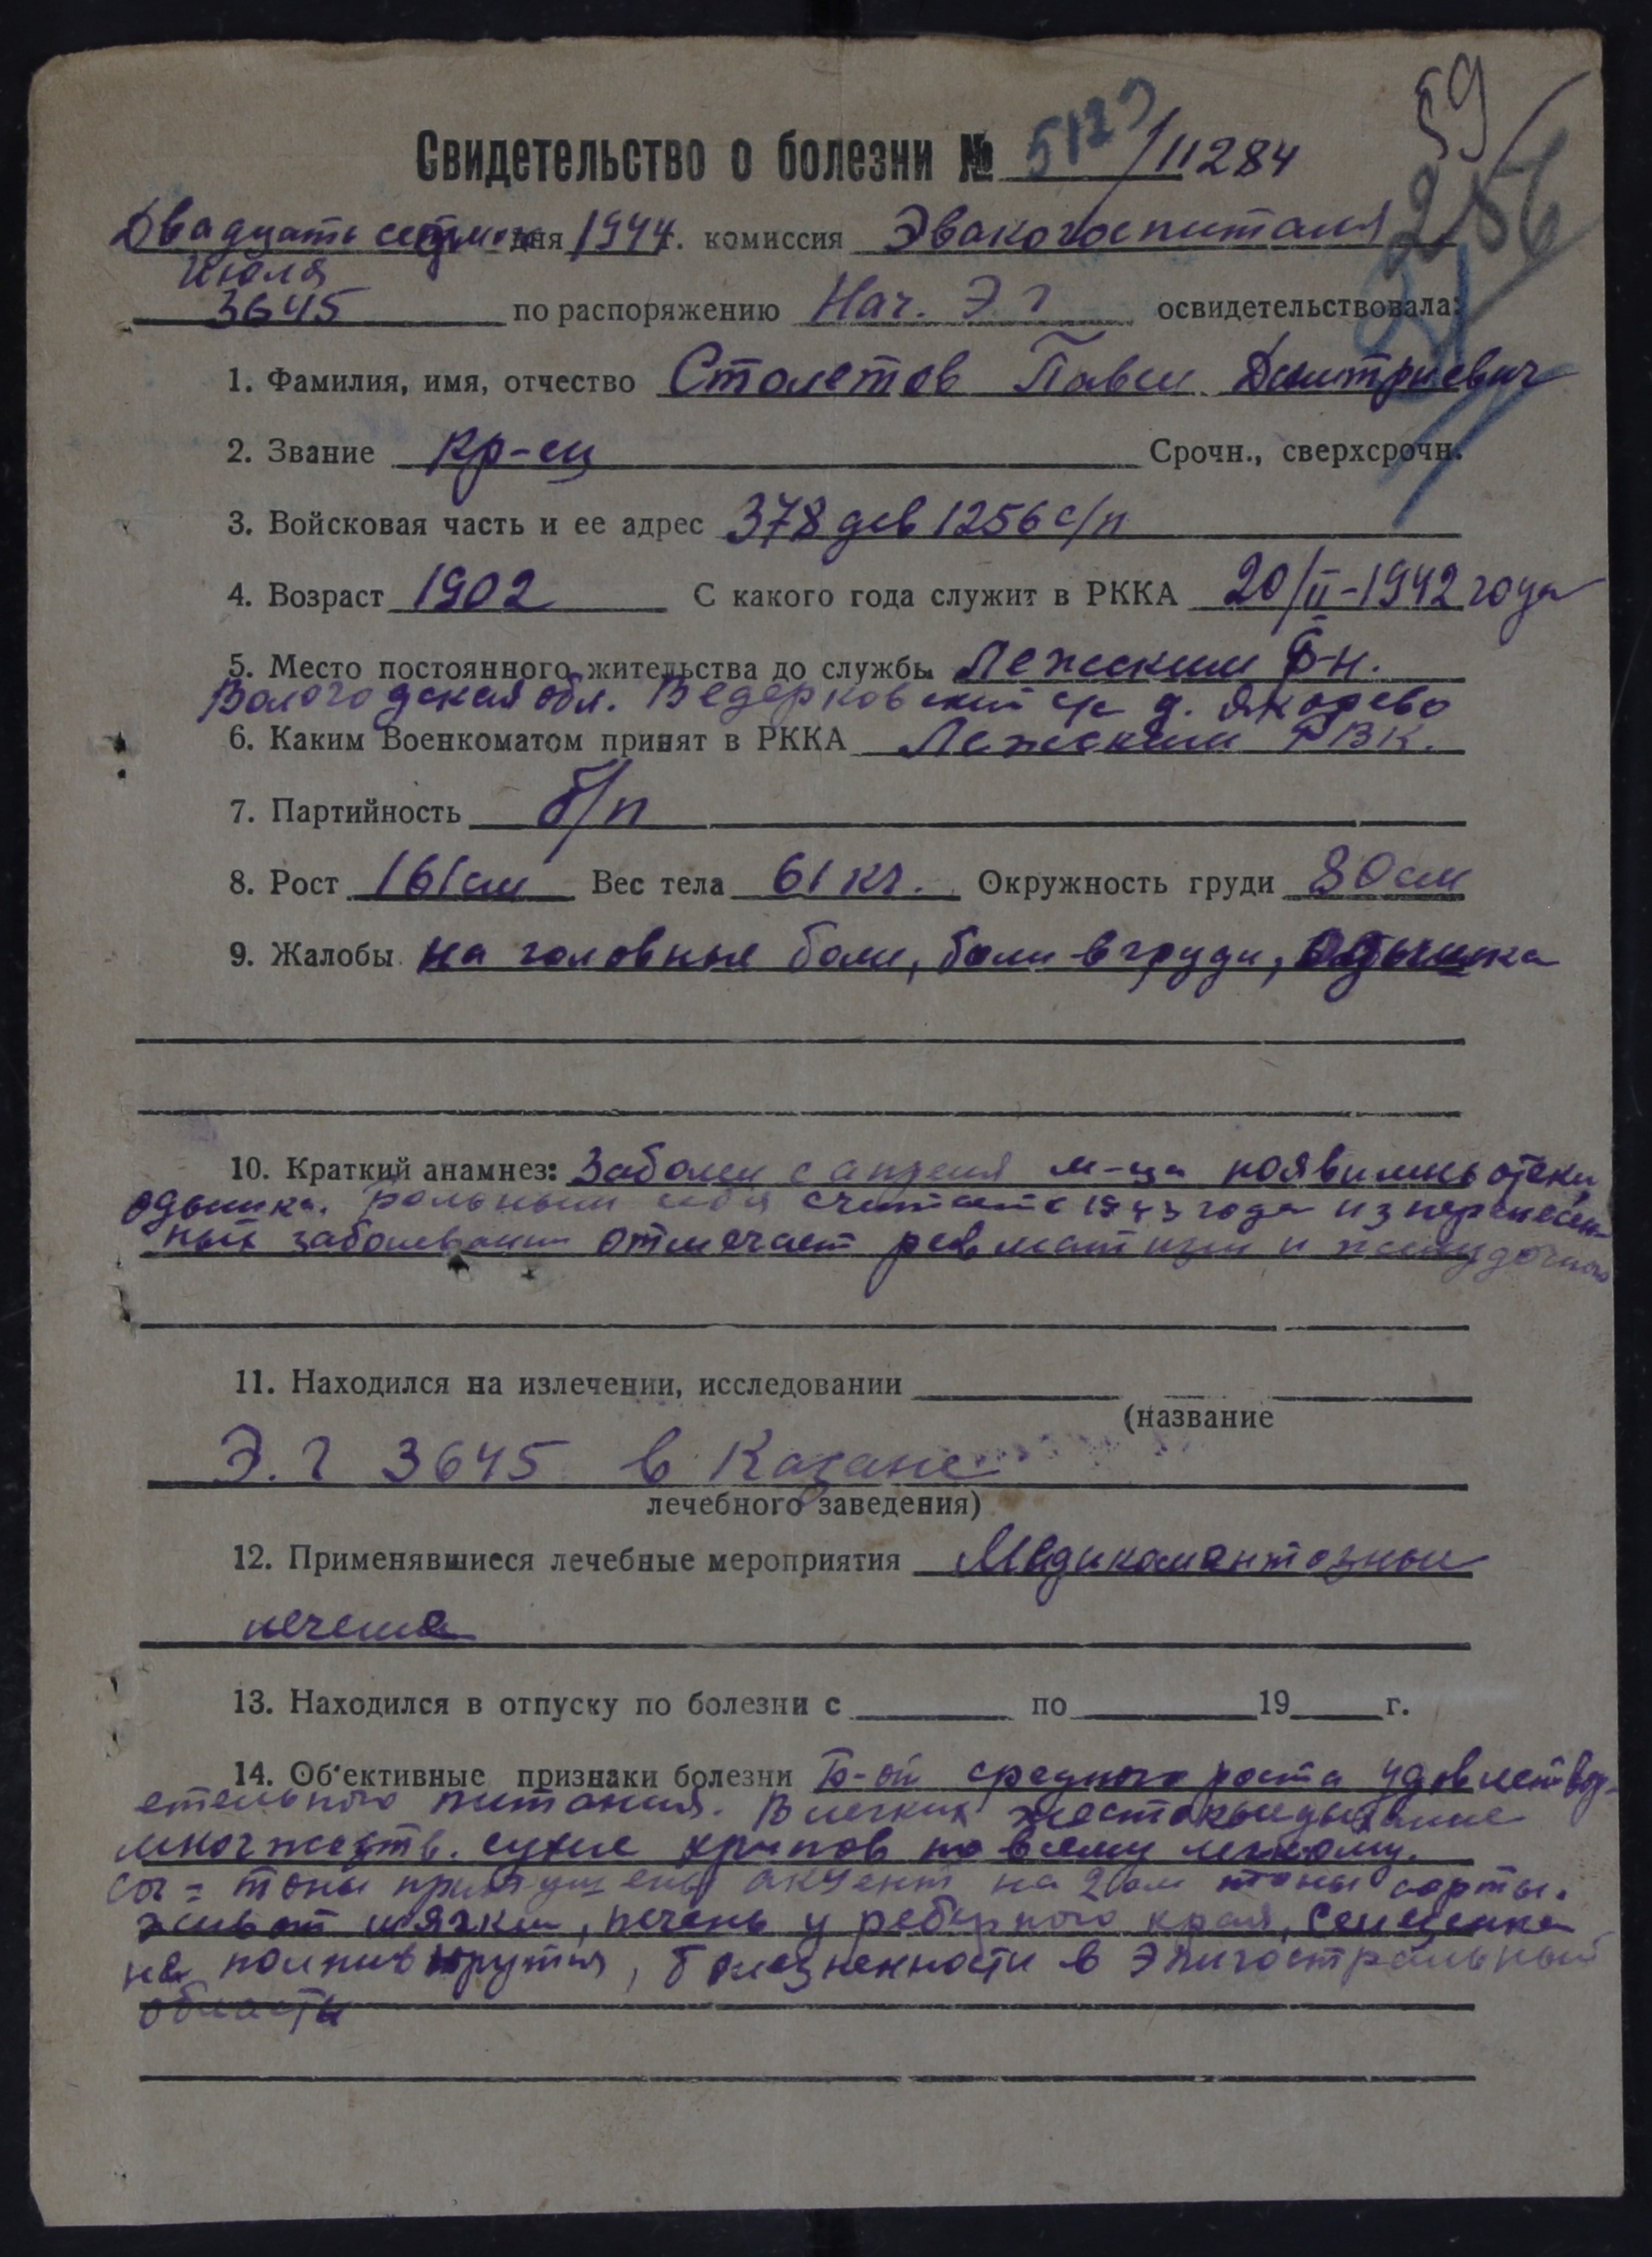 59
Свидетельство о болезни № 5127/11284
256
Двадцать седьмого дня 1944г. комиссия Эвакогоспиталя
июля
3645 по распоряжению Нач. Э Г освидетельствовала:
1. Фамилия, имя, отчество Столетов Павел Дмитриевич
2. Звание кр-ец Срочн., сверхсрочн.
3. Войсковая часть и ее адрес 378 див 1256 с/п
4. Возраст 1902 С какого года служит в РККА 20/II-1942 года
5. Место постоянного жительства до службы Лежский р-н.
Вологодская обл. Ведерковский с/с д. Якорево
6. Каким Военкоматом принят в РККА Лежским РВК.
7. Партийность б/п
8. Рост 161см Вес тела 61 кг. Окружность груди 80 см
9. Жалобы на головные боли, боли в груди, одышка
10. Краткий анамнез: Заболел с апреля м-ца появились отеки,
одышка. Больным себя считает с 1943 года из перенесен-
ных заболевании отмечает ревматизм и
11. Находился на излечении, исследовании
(название
Э. Г 3645 в Казане
лечебного заведения)
12. Применявшиеся лечебные мероприятия Медикаментозные
лечение
13. Находился в отпуску по болезни с по 19 г.
14. Об'ективные признаки болезни Б-ой среднего роста удовлетвор-
ительного питания. В легких жесткое дыхание
множеств. сухие хрипов по всему легкому.
тоны приглушены акцент на 2ом тоны аорты.
живот мягкий, печень у реберного края, селезенка
не , болезненности в эпигостральный
области